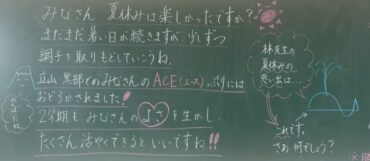 みなさん 夏休みは楽しかったですか?
まだまだ暑い日が続きますが、少しずつ
調子を取りもどしていこうね。
立山・黒部でのみなさんのACE(エース)ぶりには
おどろかされました!!
2学期もみなさんのよさを生かし
たくさん活やくできるといいですね!!
林先生の
夏休みの
思い出は…
これです。
さあ 何でしょう?